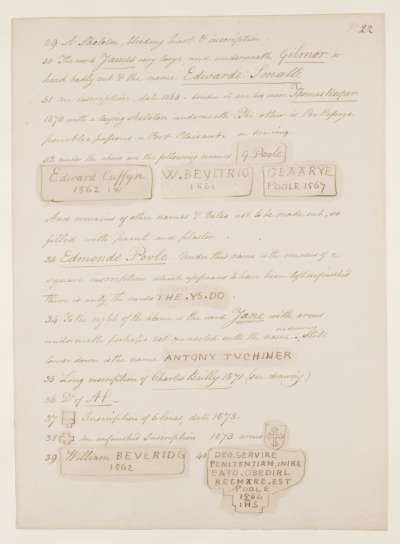 22
29 A Skeleton, bleeding heart & inscription.
30 The word James very large and underneath Gilmor a
hand badly cut & the name Edwarde Smalle
31 An inscription, date 1566. under it are two men Thomas Keeper
1570 with a laying skeleton underneath. The other is Portuguese
penibles passions a Port Plaisante
32 under the above are the following names G. Poole
Edward Cuffyn
1562
W. BEVITRIG
GEAARYE
POOLE 1567
And remains of other names & dates not to be made out, so
filled with paint and plaster.
33 Edmonde Poole. Under this name is the remains of a
square inscription which appears to have been left unfinished
there is only the words THE . YS . DO .
34 To the right of the above is the word Jane with arms
underneath perhaps not connected with the name. Still
lower down is the name ANTONY TVCHINER
35 Long inscription of Charles Bailly 1571 (see drawing)
36 Do of A f
37 Inscription of 6 lines, date 1573.
38 An unfinished Inscription 1573 arms
39 William BEVERIDG
1562
40 DEO . SERVIRE
PENITENTIAM . INIRE
FATO . OBEDIRE
REGNARE . EST
POOLE
1564
IHS